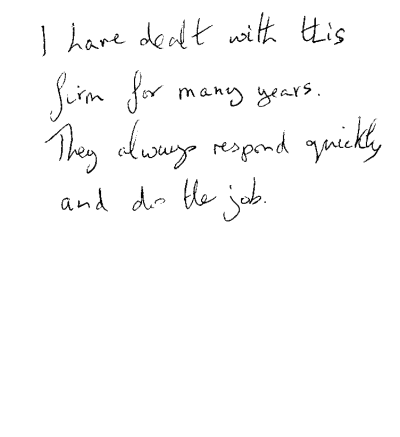 I have dealt with this
firm for many years.
They always respond quickly
and do the job.